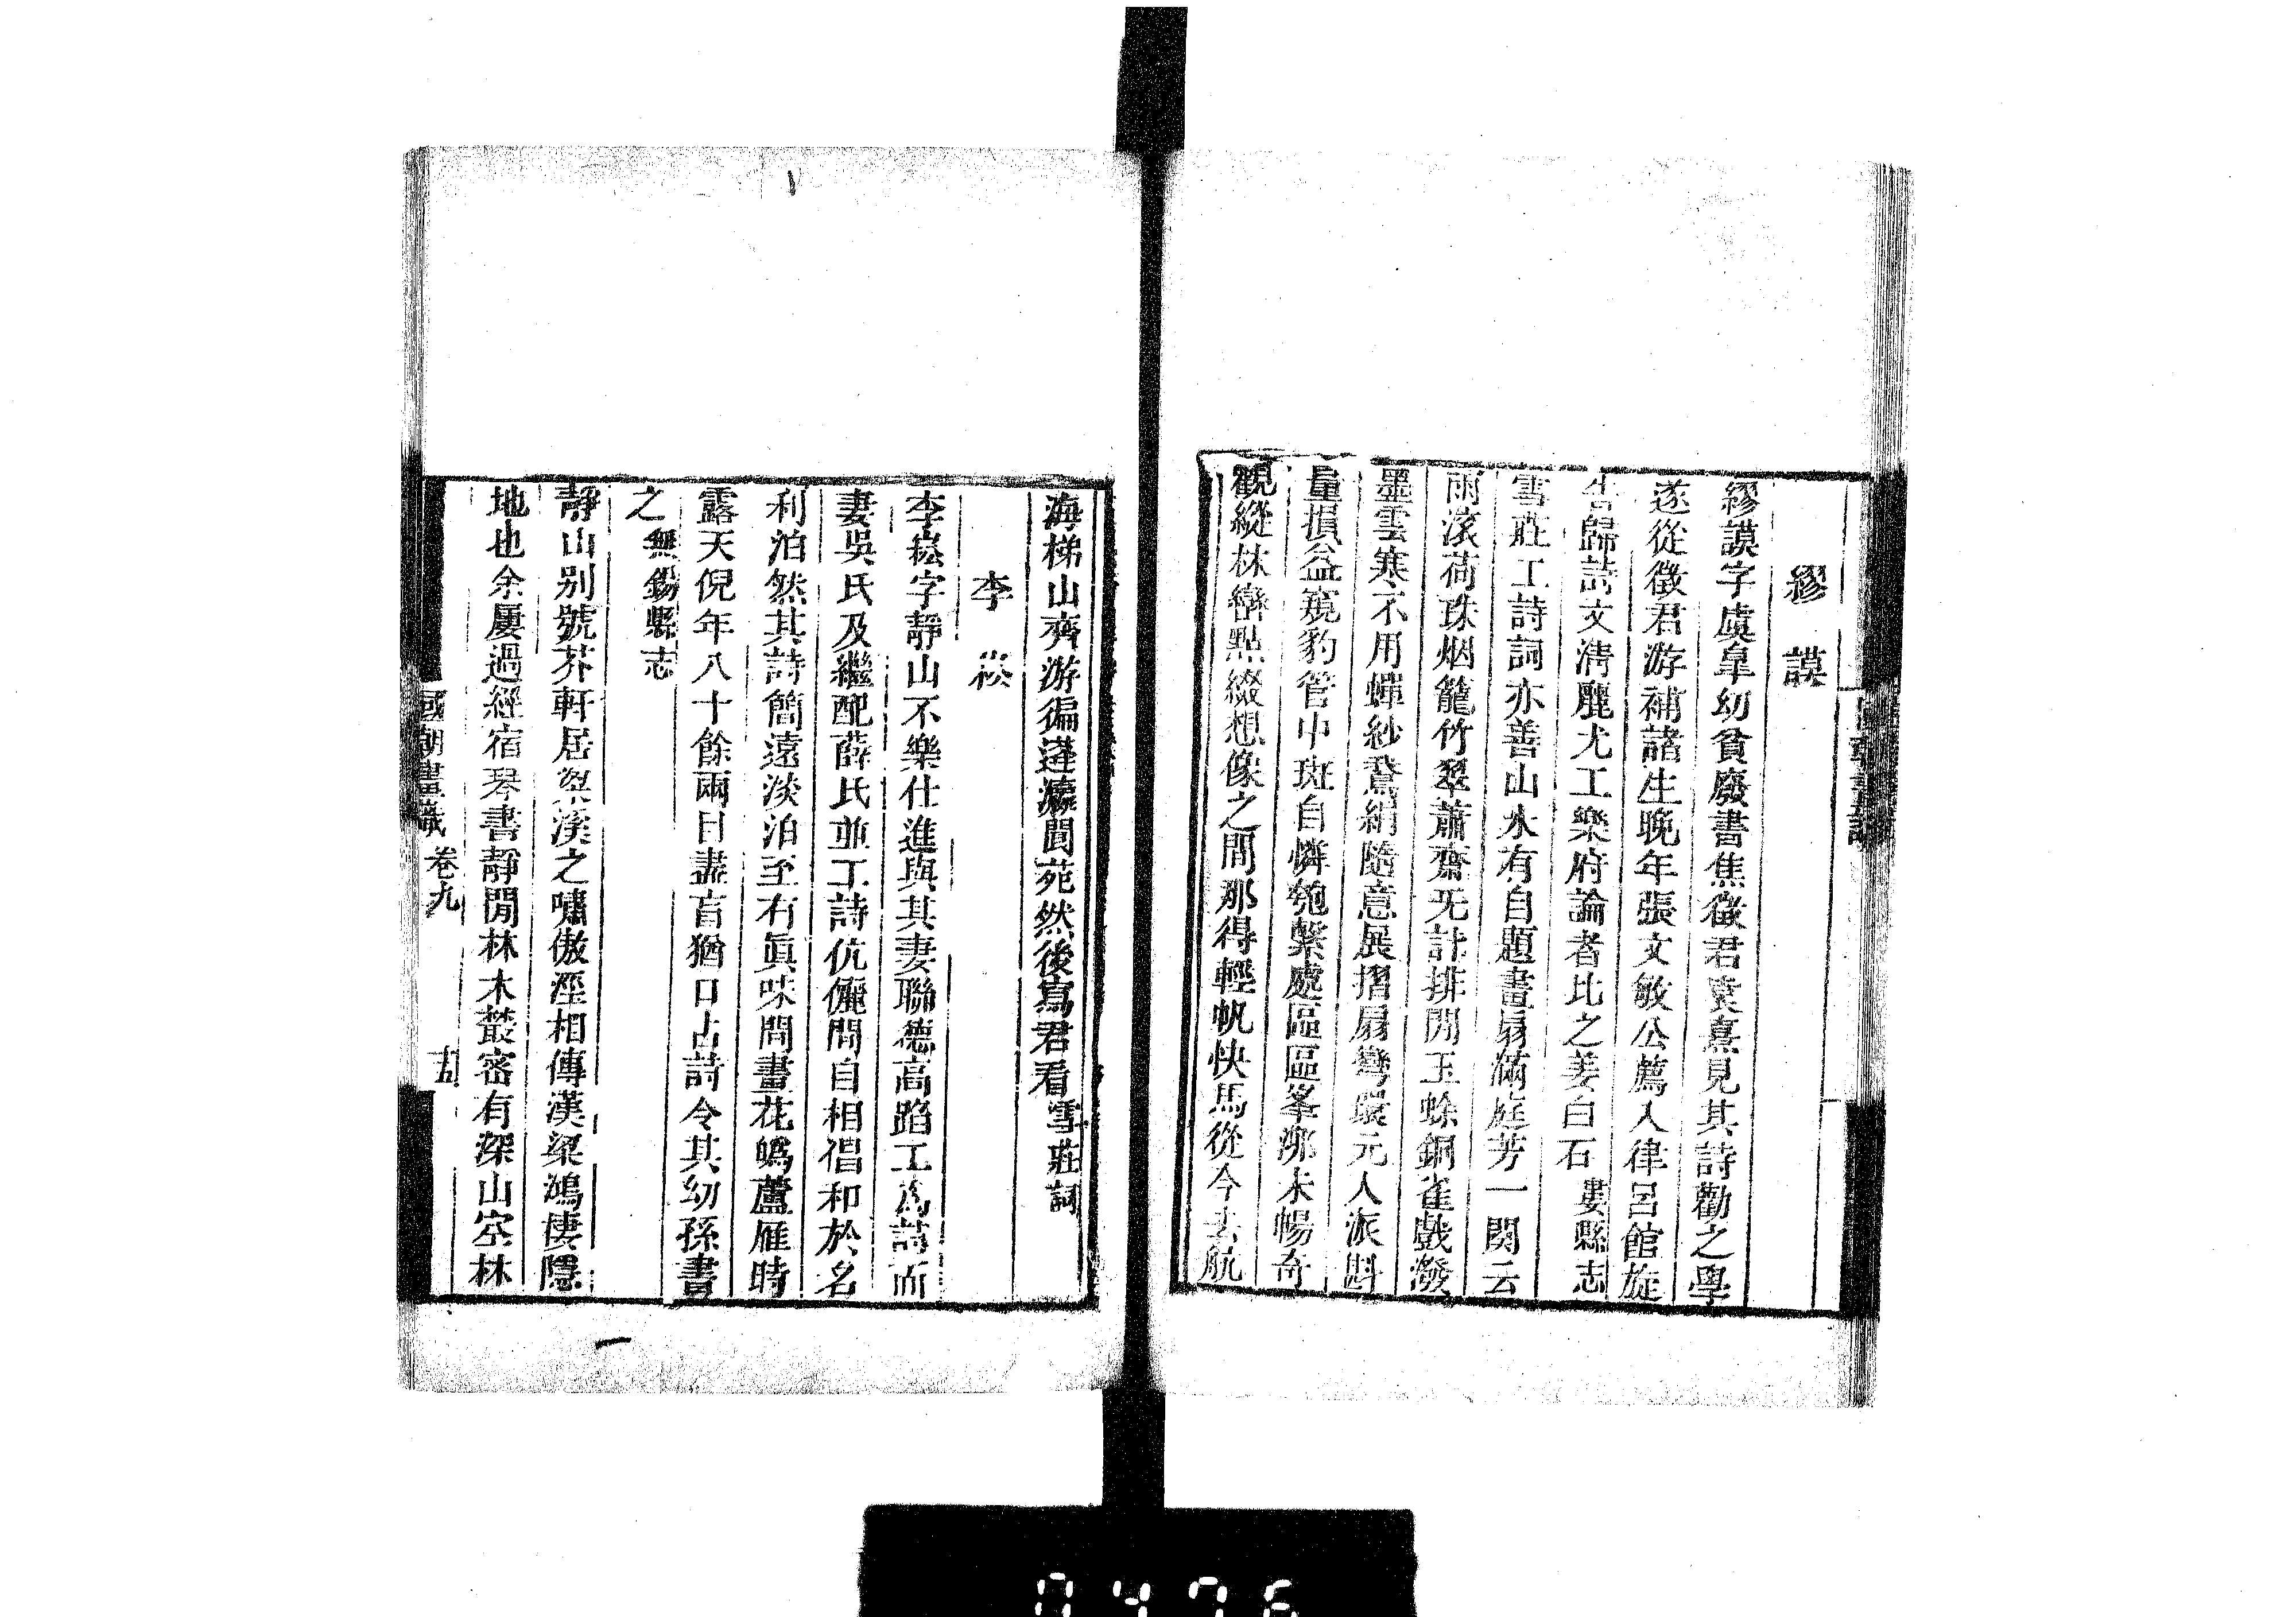 繆謨
繆謨字虞臯幼貧廢書焦徵君袁熹見其詩勸之學
遂從徵君游補諸生晚年張文敏公薦入律呂館旋
告歸詩文淸麗尤工樂府論者比之姜白石婁縣志
雪莊工詩詞亦善山水有自題畫扇滿庭芳一闋云
雨滾荷珠烟籠竹翠蕭齋无計排閒玉蜍銅雀戲潑
墨雲寒不用蟬紗鵞絹隨意展摺扇彎環元人派斟
量損益窺豹管中斑自憐匏繫處區區峯泖未暢奇
觀縱林巒點綴想像之間那得輕帆快馬從今去航
海梯山齊游徧蓬瀛閬苑然後寫君看雪莊詞
李崧
李崧字靜山不樂仕進與其妻聯德高蹈工爲詩而
妻吳氏及繼配薛氏並工詩伉儷間自相倡和於名
利泊然其詩簡遠淡泊至有眞味間畫花鳥蘆雁時
露天倪年八十餘兩目盡盲猶口占詩令其幼孫書
之無錫縣志
靜山别號芥軒居梁溪之嘯傲涇相傳漢梁鴻棲隱
地也余屢過經宿琴書靜閒林木叢密有深山空林
國朝畫識 卷九 十五